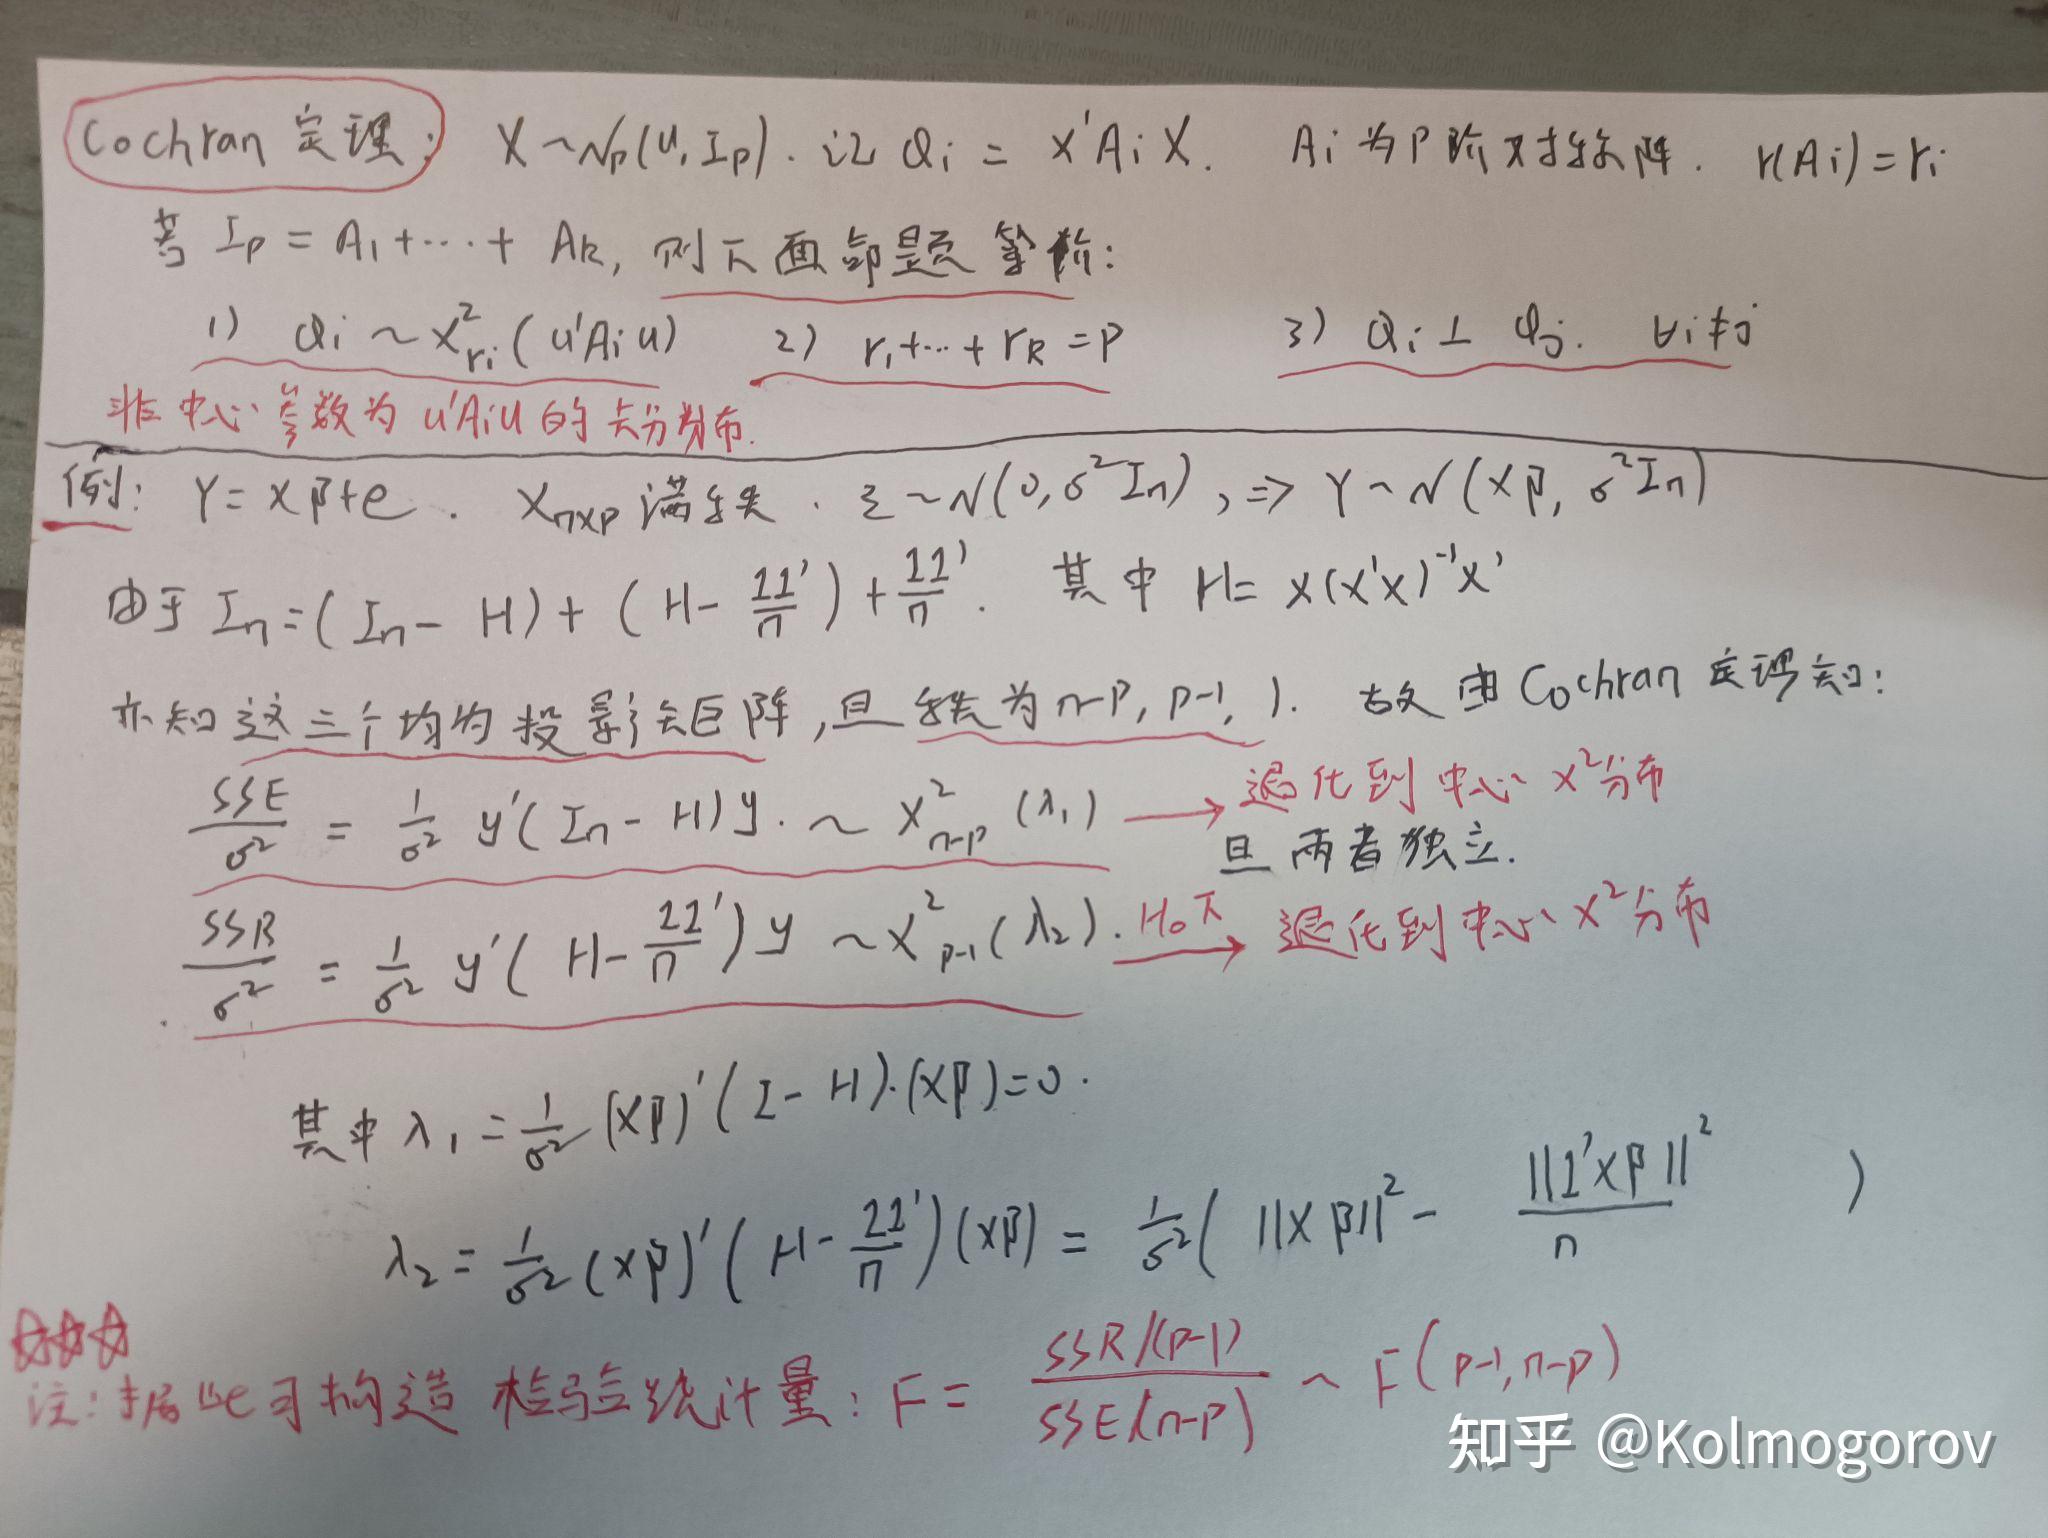 Cochran 定理: X~Np(u, Ip). 记 Qi = X'AiX. Ai 为 P 阶对称阵. r(Ai)=ri
若 Ip = A1+…+ Ak, 则下面命题等价:
1) Qi ~ χ²ri(u'Aiu) 2) r1+…+rk=p 3) Qi⊥Qj. ∀i≠j
非中心参数为 u'Aiu 的卡分布.
例: Y=Xβ+e. Xn×p 满秩. ε~N(0,σ²In), => Y~N(Xβ, σ²In)
由于 In=(In-H)+(H-11'/n)+11'/n. 其中 H=X(X'X)⁻¹X'
亦知这三个均为投影矩阵,且秩为n-p, p-1, 1. 故由Cochran定理知:
SSE/σ² = 1/σ² y'(In-H)y. ~ χ²n-p(λ1) → 退化到中心χ²分布
且两者独立.
SSR/σ² = 1/σ² y'(H-11'/n)y ~ χ²p-1(λ2). H0下 → 退化到中心χ²分布
其中 λ1 = 1/σ² (Xβ)'(I-H)·(Xβ)=0.
λ2 = 1/σ² (Xβ)'(H-11'/n)(Xβ) = 1/σ²( ||Xβ||² - ||1'Xβ||²/n )
☆☆☆
注: 据此可构造检验统计量: F = SSR/(p-1) / SSE/(n-p) ~ F(p-1, n-p)
知乎 @Kolmogorov